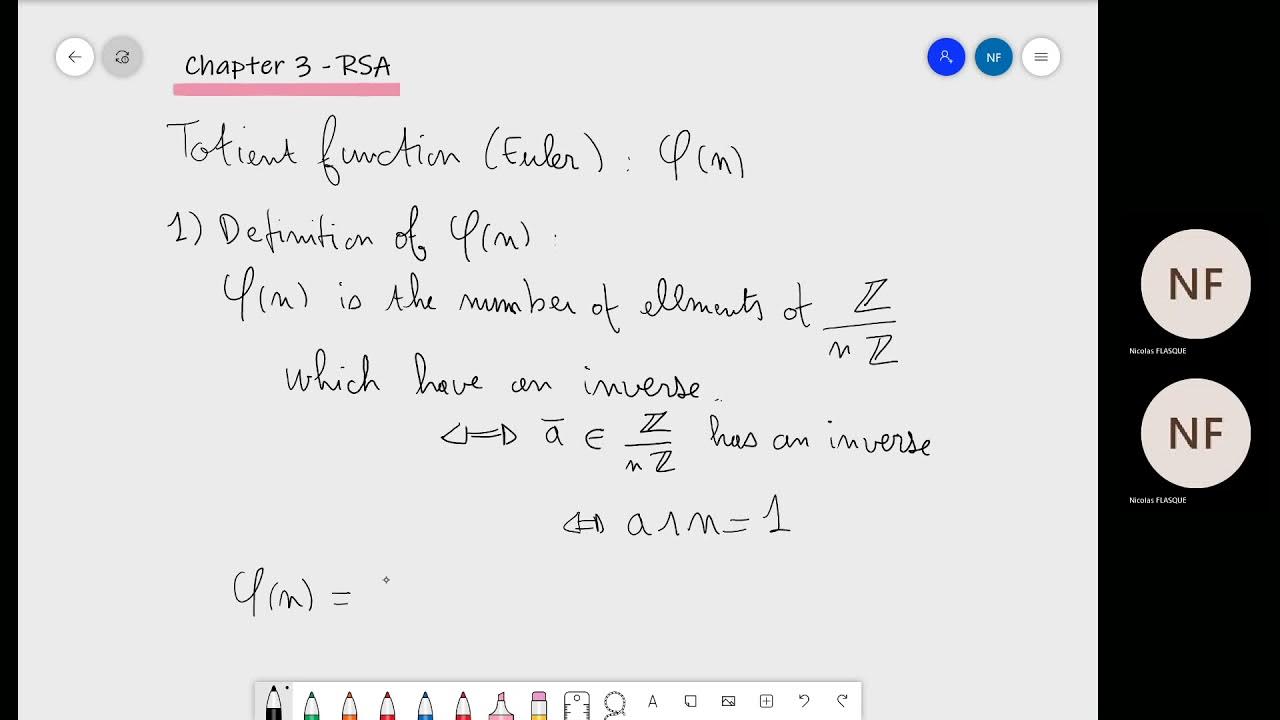 Chapter 3 - RSA
NF
Totient function (Euler) : φ(n)
1) Definition of φ(n) :
φ(n) is the number of ellments of ℤ/nℤ
which have an inverse.
⇔ a̅ ∈ ℤ/nℤ has an inverse
⇔ a ∧ n = 1
φ(n) =
NF
Nicolas FLASQUE
NF
Nicolas FLASQUE
A